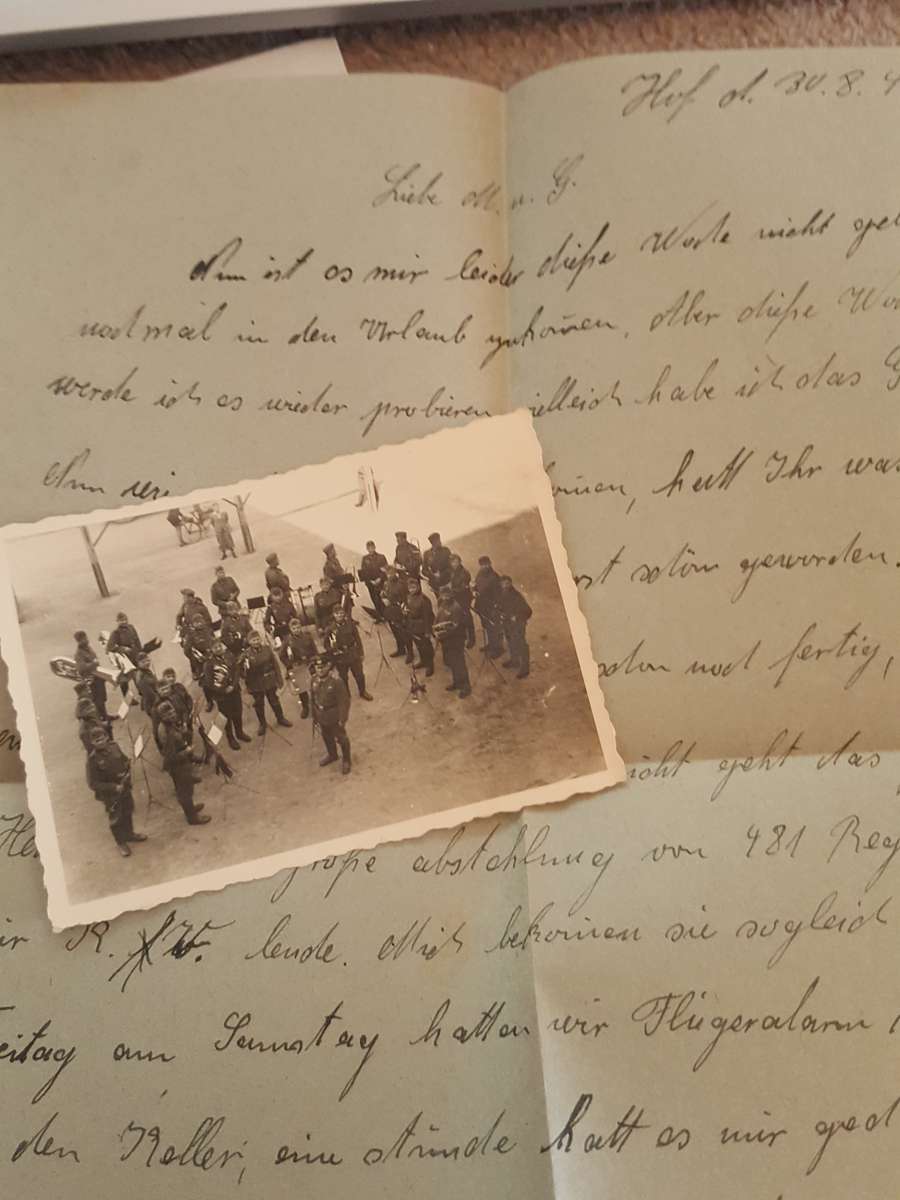 Hof d. 30. 8. 4
Liebe M. u. G.
Nun ist es mir leider dieße Woche nicht gel
nochmal in den Urlaub zukom̄en, Aber dieße Woc
werde ich es wieder probieren vielleich habe ich das G
Nun wi om̄en, hatt Ihr was
st schön geworden.
schon noch fertig,
icht geht das
He große abstehlung von 481 Reg
ir K. W. leude. Mich bekom̄en sie sogleich
eitag am Samstag hatten wir Flügeralarm
den Keller, eine stunde hatt es mir ged